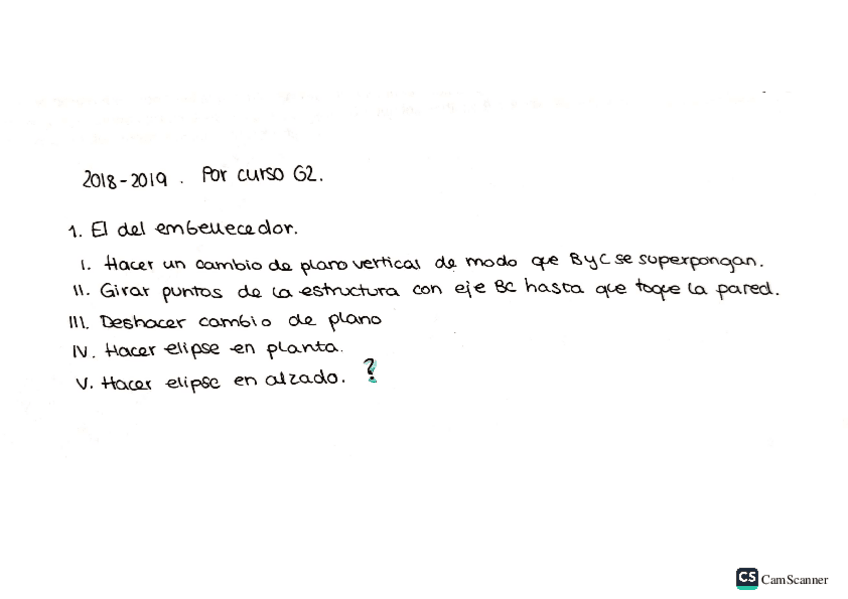 2018-2019. Por curso G2.
1. El del embellecedor.
I. Hacer un cambio de plano vertical de modo que B y C se superpongan.
II. Girar puntos de la estructura con eje BC hasta que toque la pared.
III. Deshacer cambio de plano
IV. Hacer elipse en planta.
V. Hacer elipse en alzado. ?
CS CamScanner